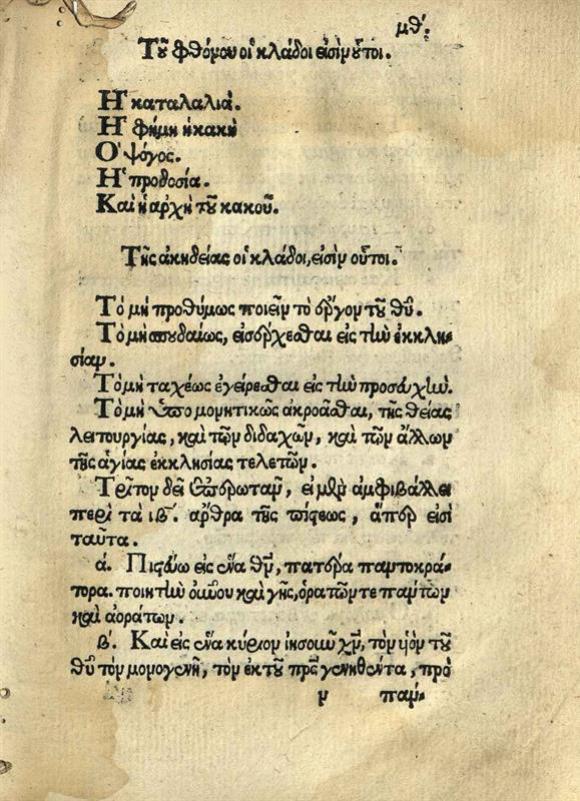 μθʹ.
Τοῦ φθόνου οἱ κλάδοι εἰσὶν οὗτοι.
Ἡ καταλαλιά.
Ἡ φήμη ἡ κακὴ
Ὁ ψόγος.
Ἡ προδοσία.
Καὶ ἡ ἀρχὴ τοῦ κακοῦ.
Τῆς ἀκηδείας οἱ κλάδοι, εἰσὶν οὗτοι.
Τὸ μὴ προθύμως ποιεῖν τὸ ἔργον τοῦ θῦ.
Τὸ μὴ σπουδαίως, εἰσέρχεσθαι εἰς τὴν ἐκκλη-
σίαν.
Τὸ μὴ ταχέως ἐγείρεσθαι εἰς τὴν προσευχήν.
Τὸ μὴ ὑπομονητικῶς ἀκροᾶσθαι, τῆς θείας
λειτουργίας, καὶ τῶν διδαχῶν, καὶ τῶν ἄλλων
τῆς ἁγίας ἐκκλησίας τελετῶν.
Τρίτον δεῖ ἐπερωτᾶν, εἰ μὲν ἀμφιβάλλει
περὶ τὰ ιβʹ. ἄρθρα τῆς πίστεως, ἅπερ εἰσὶ
ταῦτα.
ά. Πιστεύω εἰς ἕνα θν̃, πατέρα παντοκρά-
τορα. ποιητὴν οὐνοῦ καὶ γῆς, ὁρατῶν τε πάντων
καὶ ἀοράτων.
βʹ. Καὶ εἰς ἕνα κύριον ἰησοῦν χν̃, τὸν υἱὸν τοῦ
θῦ τὸν μονογενῆ, τὸν ἐκ τοῦ πρ̃ς γεννηθέντα, πρὸ
ν παν-